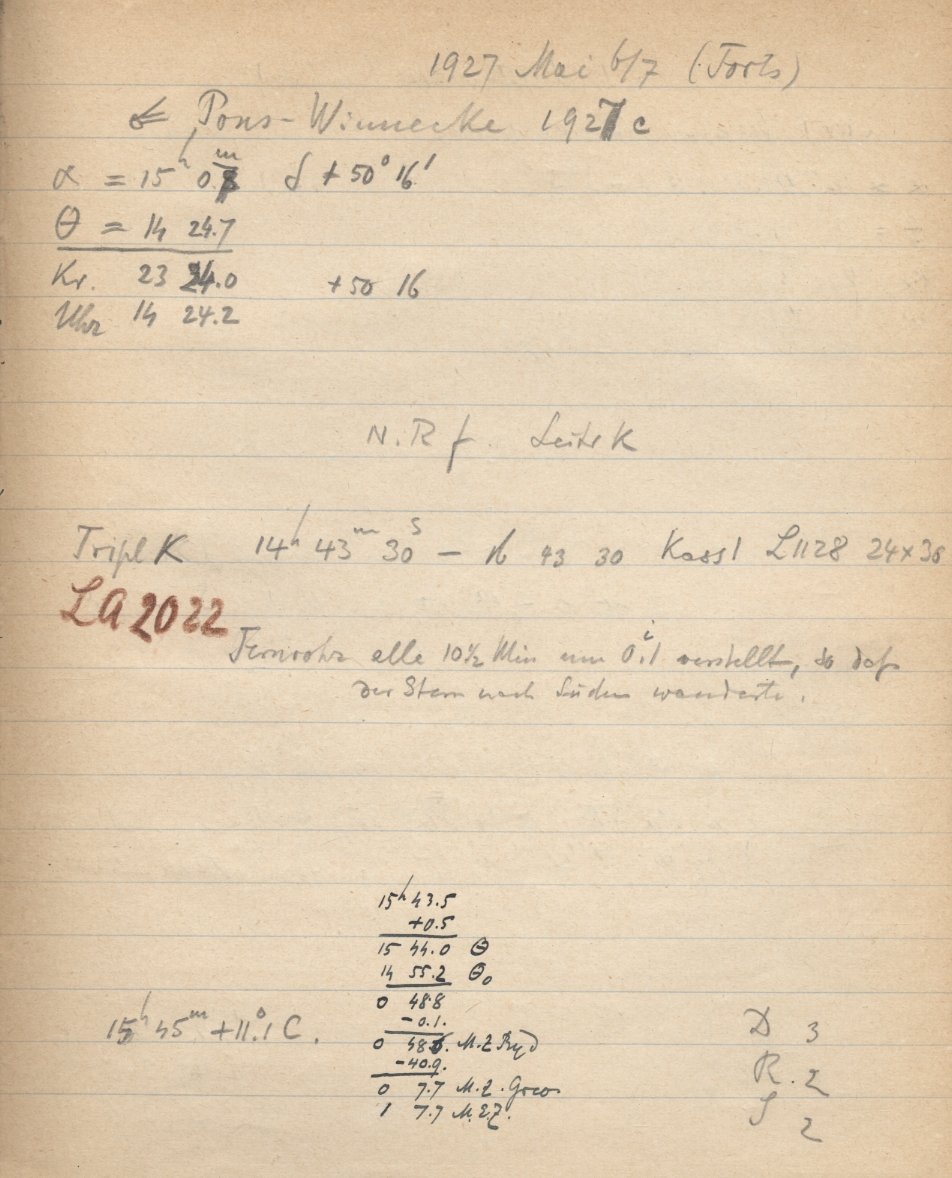 1927 Mai 6/7 (Forts)
Pons-Winnecke 1927 c
α = 15h 08m δ +50° 16'
θ = 14 24.7
Kr. 23 24.0 +50 16
Uhr 14 24.2
N.R f. Leitr K
Tripl K 14h 43m 30s – 16 43 30 Kass 1 L1128 24×38
LA 2022
Fernrohr alle 10½ Min um 0i.1 verstellt, so daß
der Stern nach Süden wanderte.
15h 43.5
+0.5
15 44.0 θ
14 55.2 θ0
0 48.8
-0.1.
15h 45m +11.°1 C.
0 48.6. M.Z Byd
-40.9.
0 7.7 M.Z. Grw.
1 7.7 M.E.Z.
D 3
R. 2
S 2